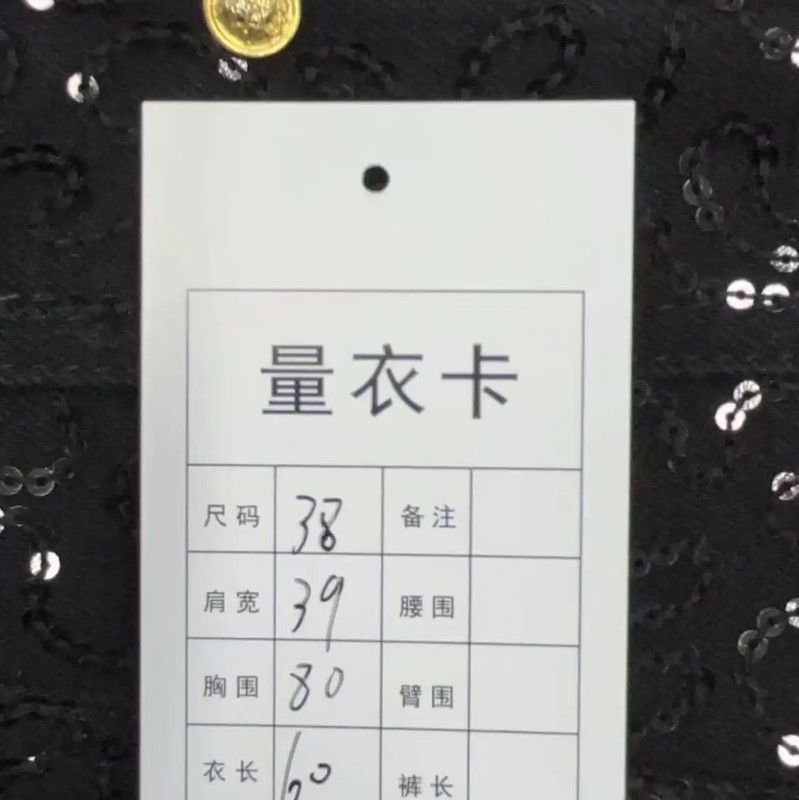 量衣卡
尺码 38 备注
肩宽 39 腰围
胸围 80 臂围
衣长 裤长